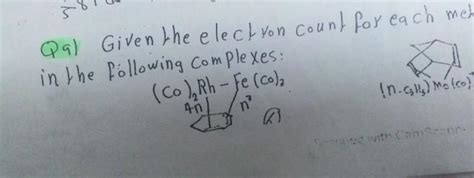 Q9) Given the electron count for each met
in the following complexes:
(CO)₂Rh – Fe(CO)₂
4n n³
(n-C₅H₅) Mo(CO)